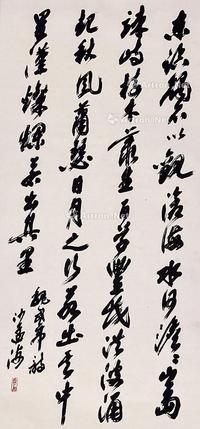 東臨碣石以觀滄海水何澹々山島
竦峙樹木叢生百草豐茂洪波涌
起秋風蕭瑟日月之行若出其中
星漢燦爛若出其里
魏武帝詩
沙孟海